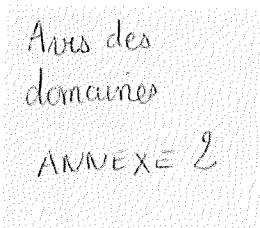 Avis des
domaines
ANNEXE 2